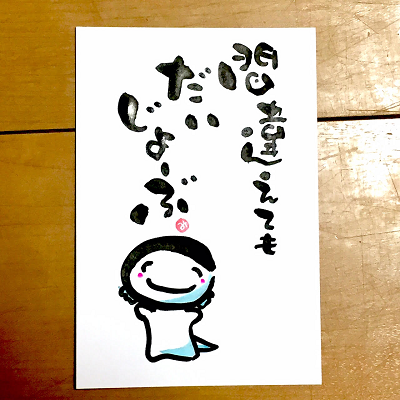 間違えても
だい
じょーぶ